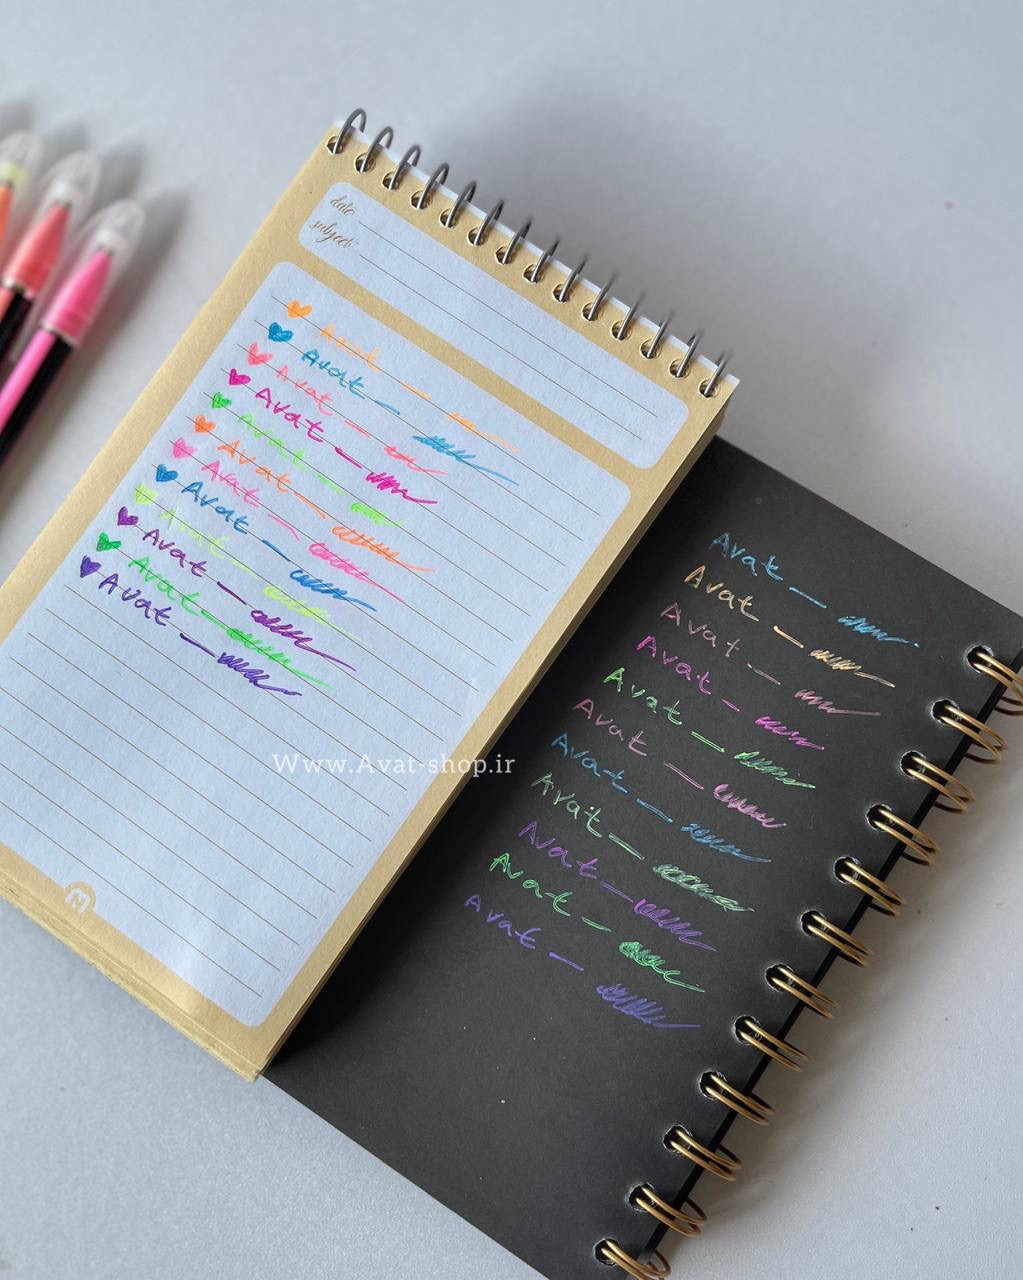 date
subject:
Avat —
Avat —
Avat —
Avat —
Avat —
Avat —
Avat —
Avat —
Avat —
Avat —
Avat —
Avat —
N
Www.Avat-shop.ir
Avat —
Avat —
Avat —
Avat —
Avat —
Avat —
Avat —
Avat —
Avat —
Avat —
Avat —